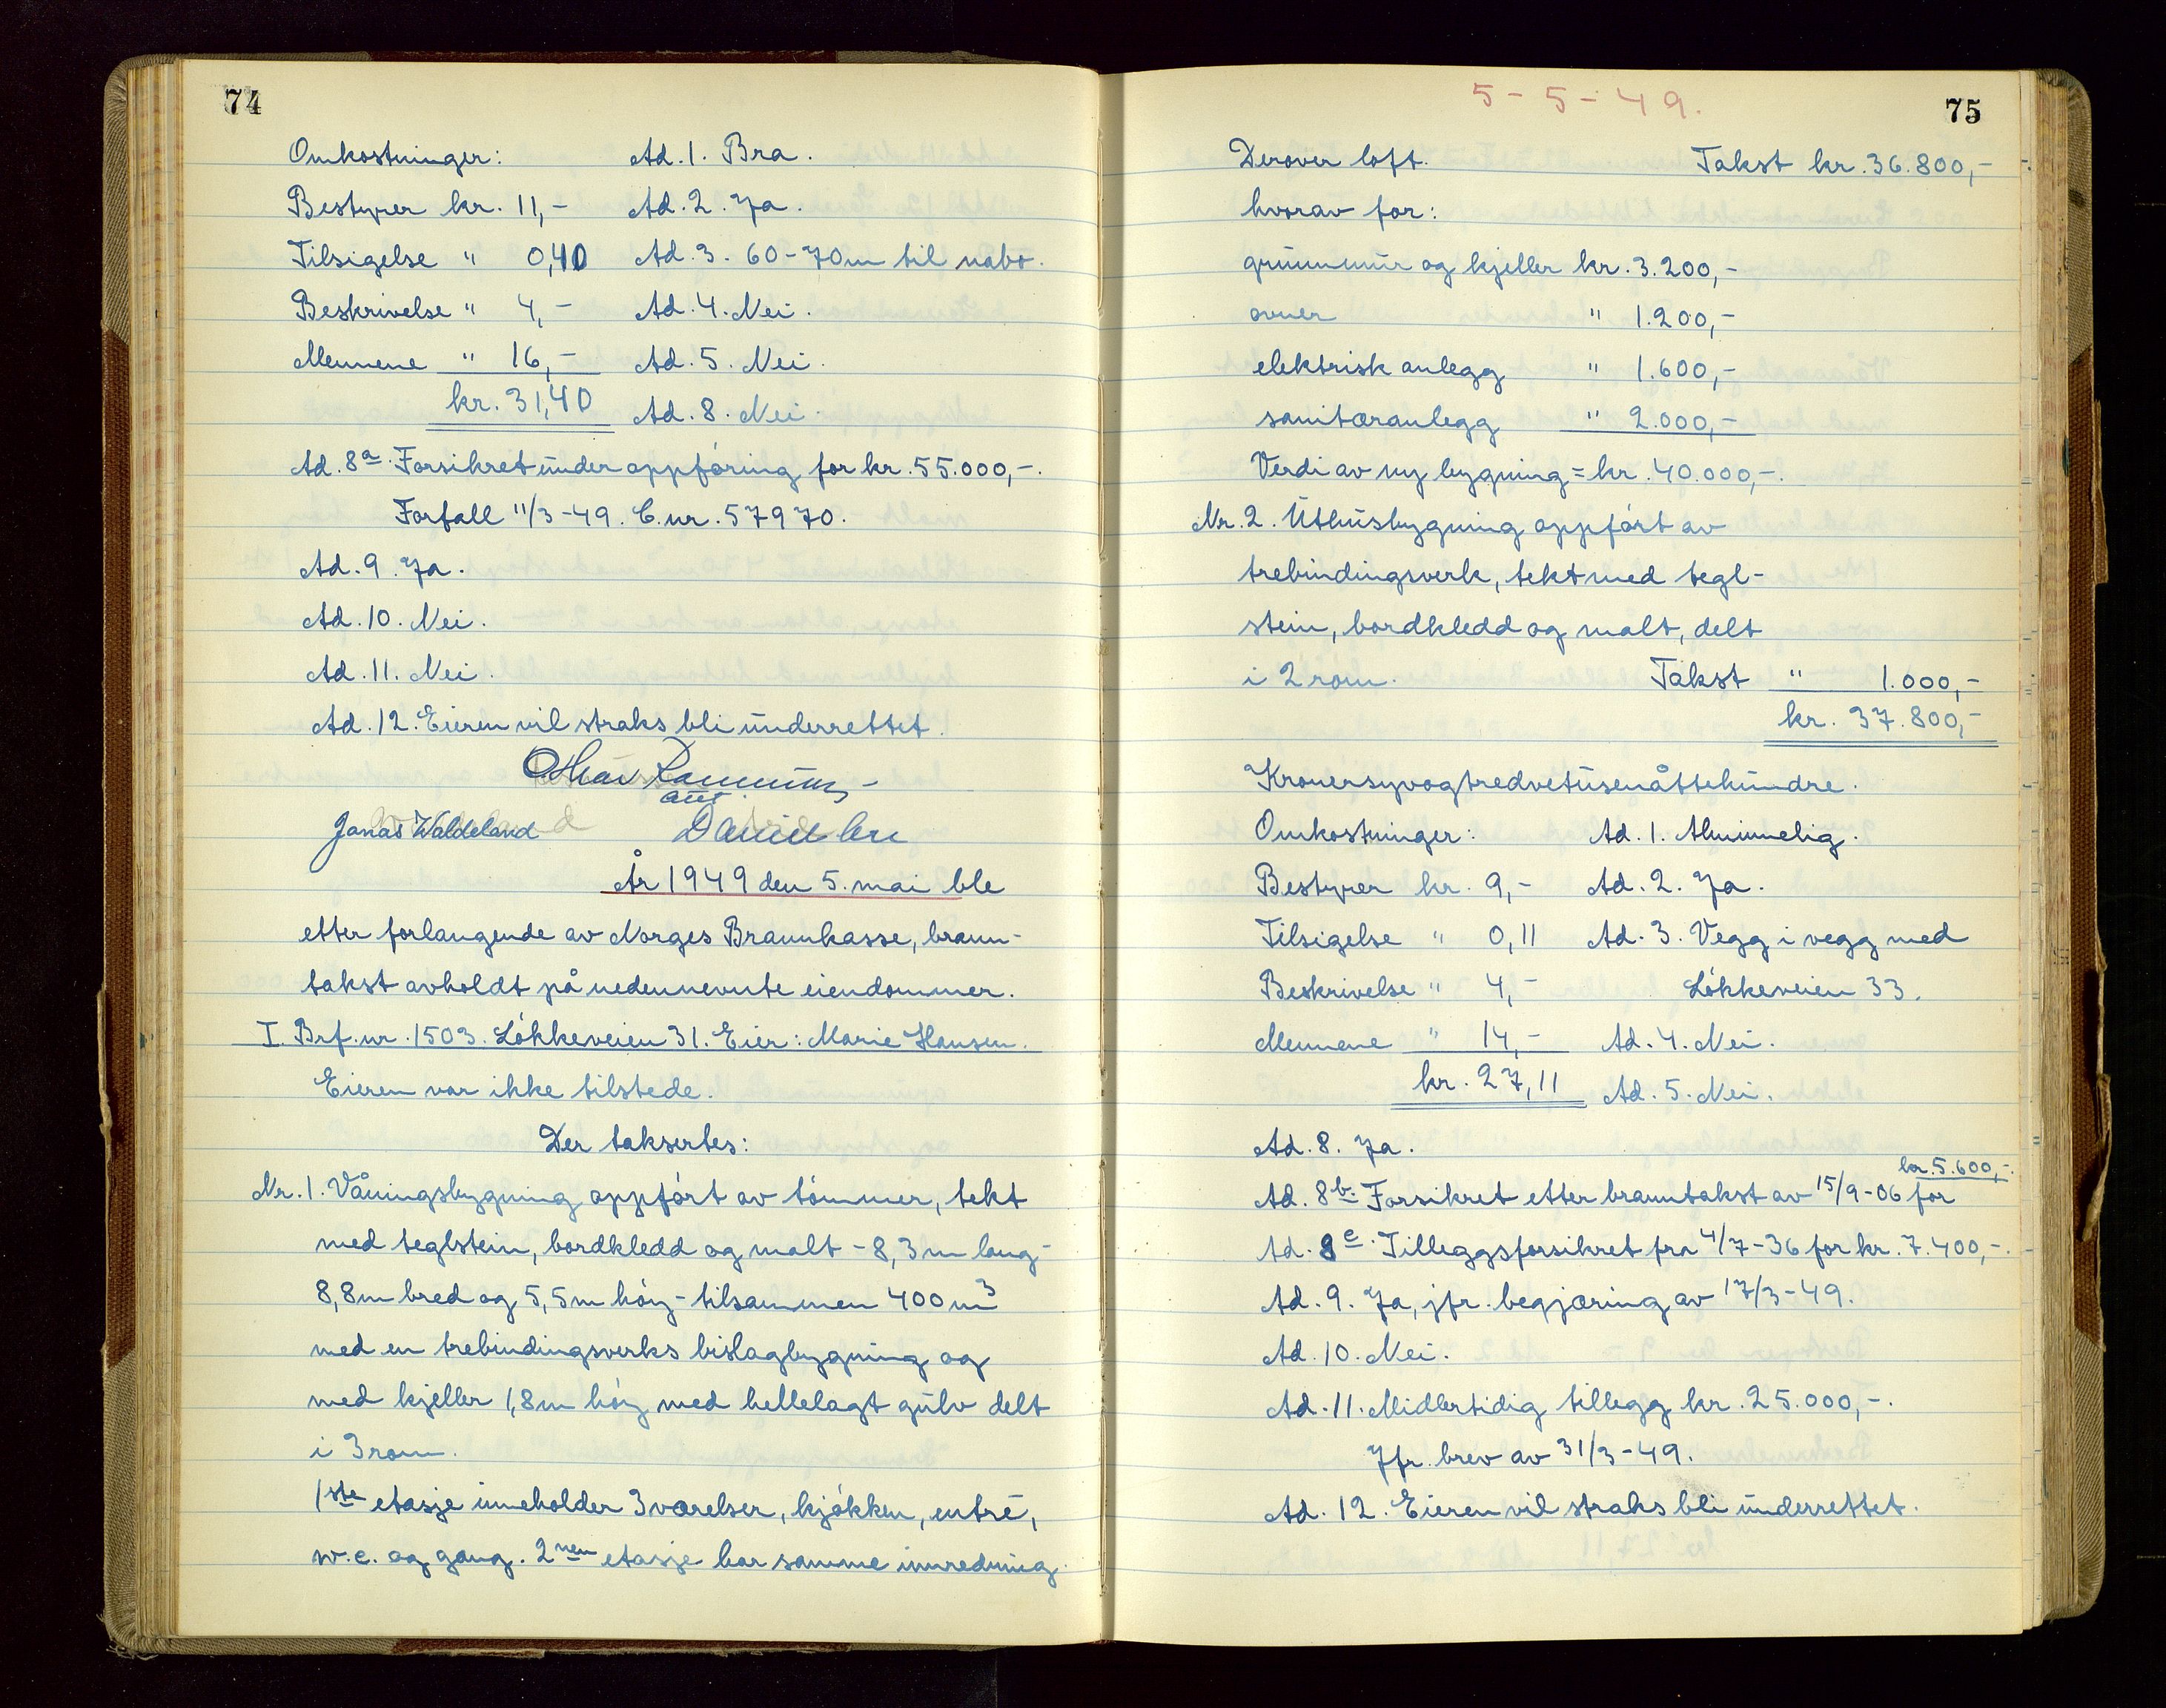 74
Omkostninger: Ad. 1. Bra.
Bestyrer kr. 11,- Ad. 2. Ja.
Tilsigelse " 0,40 Ad. 3. 60-70m til nabo.
Beskrivelse " 4,- Ad. 4. Nei.
Mennene " 16,- Ad. 5. Nei.
kr. 31,40 Ad. 8. Nei.
Ad. 8a. Forsikret under oppføring for kr. 55.000,-.
Forfall 11/3-49. C.nr. 57970.
Ad. 9. Ja.
Ad. 10. Nei.
Ad. 11. Nei.
Ad. 12. Eieren vil straks bli underrettet.
Jonas Waldeland
År 1949 den 5. mai ble
etter forlangende av Norges Brannkasse, brann-
takst avholdt på nedennevnte eiendommer.
I. Brf.nr. 1503. Løkkeveien 31. Eier: Marie Hansen.
Eieren var ikke tilstede.
Der taksertes:
Nr. 1. Våningsbygning oppført av tømmer, tekt
med teglstein, bordkledd og malt - 8,3m lang-
8,8m bred og 5,5m høy - tilsammen 400m3
med en trebindingsverks bislagbygning og
med kjeller 1,8m høy med hellelagt gulv delt
i 3 rom.
1ste etasje inneholder 3 værelser, kjøkken, entré,
w.c. og gang. 2nen etasje har samme innredning.
5-5-49.
75
Derover loft. Takst kr. 36.800,-
hvorav for:
grunnmur og kjeller kr. 3.200,-
ovner " 1.200,-
elektrisk anlegg " 1.600,-
sanitæranlegg " 2.000,-
Verdi av ny bygning = kr. 40.000,-.
Nr. 2. Uthusbygning oppført av
trebindingsverk, tekt med tegl-
stein, bordkledd og malt, delt
i 2 rom. Takst " 1.000,-
kr. 37.800,-
Kronersyvogtredvetusenåttehundre.
Omkostninger: Ad. 1. Alminnelig.
Bestyrer kr. 9,- Ad. 2. Ja.
Tilsigelse " 0,11 Ad. 3. Vegg i vegg med
Beskrivelse " 4,- Løkkeveien 33.
Mennene " 14,- Ad. 4. Nei.
kr. 27,11 Ad. 5. Nei.
Ad. 8. Ja.
kr. 5.600,-.
Ad. 8b. Forsikret etter branntakst av 15/9-06 for
Ad. 8e. Tilleggsforsikret fra 4/7-36 for kr. 7.400,-.
Ad. 9. Ja, jfr. begjæring av 17/3-49.
Ad. 10. Nei.
Ad. 11. Midlertidig tillegg kr. 25.000,-.
Jfr. brev av 31/3-49.
Ad. 12. Eieren vil straks bli underrettet.